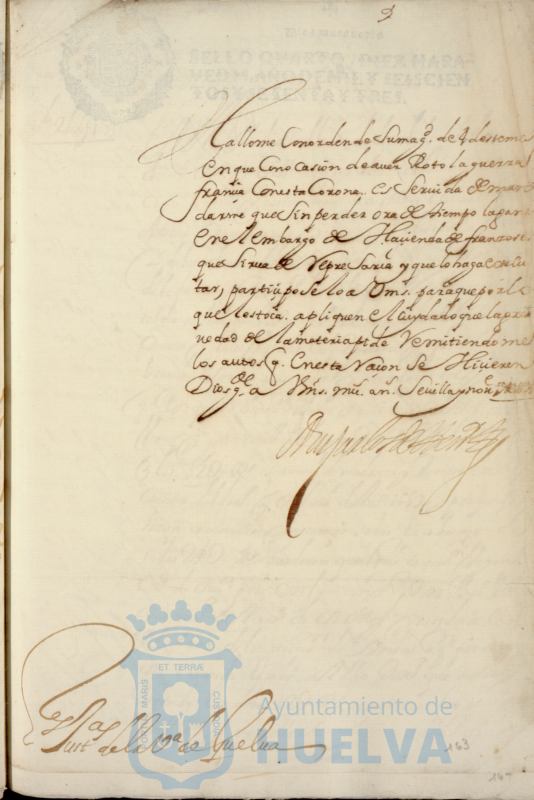 9
SELLO QUARTO, DIEZ MARA-
VEDIS, AÑO DE MIL Y SEISCIEN
TOS Y SETENTA Y TRES.
Hallome Con orden de Su mag.d de 4 deste mes
en que Con ocasion de aver Roto la guerra
françia Con esta Corona, es Servida de man
darme que Sin perder ora de tiempo haga
en el Embargo de Haçienda de franzeses
que Sirva de Represaria y que lo haga executar,
tar, partiçiposelo a Vms. para que por lo
que les toca apliquen el Cuydado que la gra
uedad de la materia pide Remitiendome
los autos q. en esta Raçon Se Hiçieren
Dios g.e a Vms. mu. an. Sevilla y nou.e
S.res Just.a de la V.a de Huelua
ET TERRÆ
MARIS
CUSTODIA
Ayuntamiento de
HUELVA
163